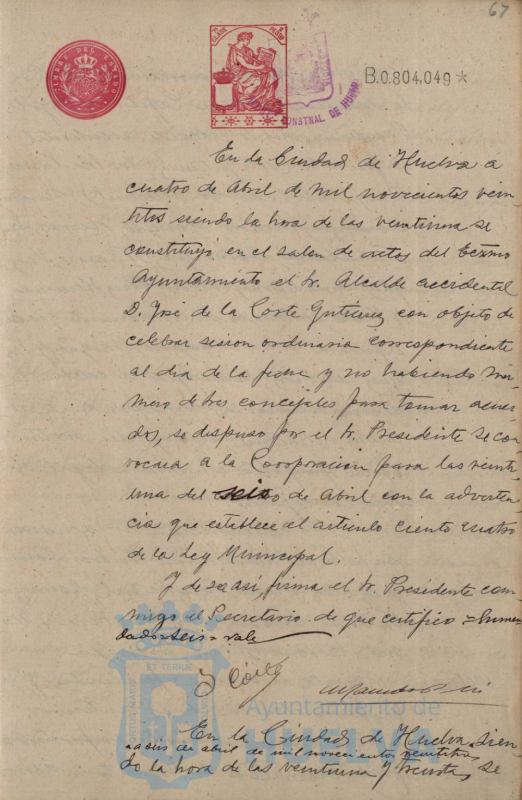 67
TIMBRE DEL ESTADO
B.0.804,049 *
CONSTNAL. DE HUELVA
En la Ciudad de Huelva a
cuatro de Abril de mil novecientos vein
titres siendo la hora de las veintiuna se
constituyó en el salon de actos del Excmo
Ayuntamiento el Sr. Alcalde accidental
D. José de la Corte Gutierrez con objeto de
celebrar sesion ordinaria correspondiente
al dia de la fecha y no habiendo nú-
mero de tres concejales para tomar acuer
dos, se dispuso por el Sr. Presidente se con
vocara a la Corporacion para las veinti-
una del seis de Abril con la adverten
cia que establece el articulo ciento cuatro
de la Ley Municipal.
Y de ser asi, firma el Sr. Presidente con-
migo el Secretario de que certifico = Enmen
dado = seis = vale
J Corte
Ayuntamiento de
En la Ciudad de Huelva, sien
a seis de abril de mil novecientos veintitres
do la hora de las veintiuna y treinta, se